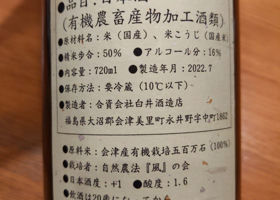 ●品目：日本酒
(有機農畜産物加工酒類)
●原材料名：米（国産）、米こうじ（国産米）
●精米歩合：50% ●アルコール分：16%
●内容量：720ml ●製造年月：2022.7
●保存方法：要冷蔵（10℃以下）
●製造者：合資会社白井酒造店
福島県大沼郡会津美里町永井野字中町1862
●原料米：会津産有機栽培五百万石（100%）
●栽培者：自然農法『風』の会
●日本酒度：+1 ●酸度：1.6
●飲酒は20歳になってから